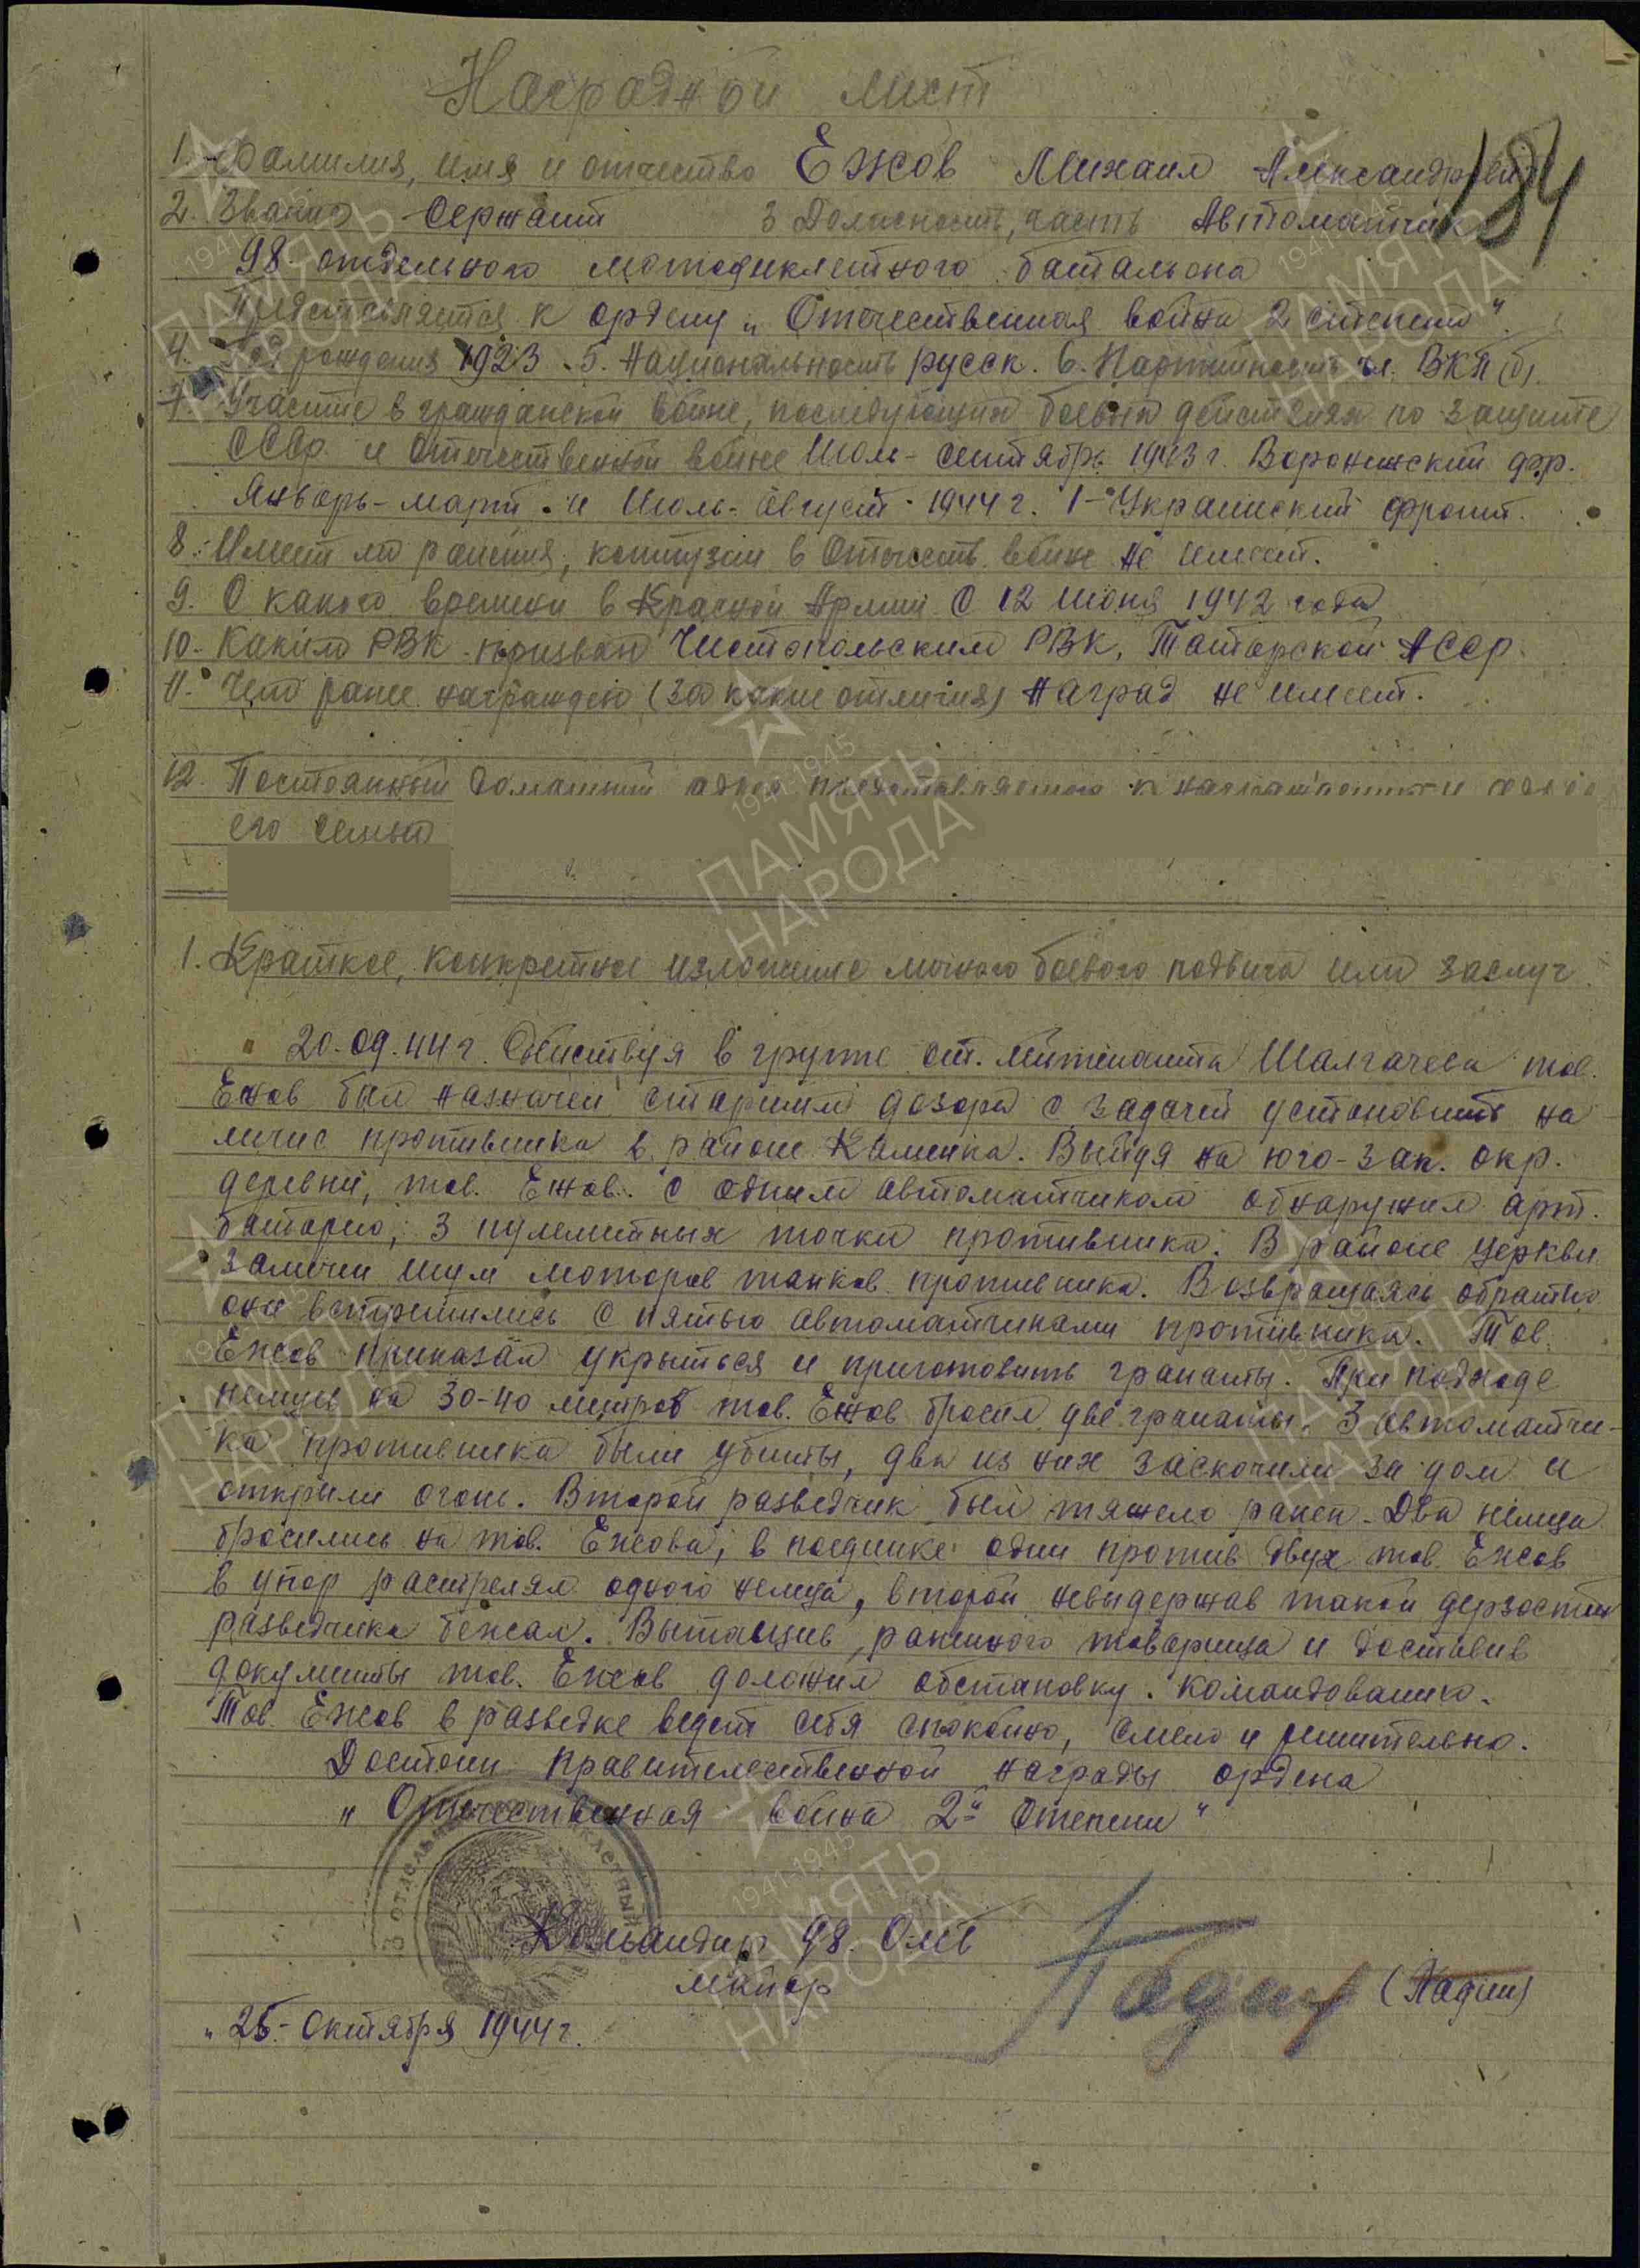 Наградной лист
184
1. Фамилия, имя и отчество Ежов Михаил Александрович
2. Звание Сержант 3 Должность, часть Автоматчик
98 отдельного мотоциклетного батальона
Представляется к ордену „Отечественная война 2 степени"
4. Год рождения 1923. 5. Национальность русск. 6. Партийность чл. ВКП(б).
7. Участие в гражданской войне, последующих боевых действиях по защите
СССР и отечественной войне Июль - сентябрь 1943 г. Воронежский фр.
Январь - март и Июль - Август - 1944 г. 1-Украинский фронт.
8. Имеет ли ранения, контузии в Отечеств. войне не имеет.
9. С какого времени в Красной Армии С 12 июня 1942 года
10. Каким РВК призван Чистопольским РВК, Татарской АССР.
11. Чем ранее награжден (за какие отличия) наград не имеет.
12. Постоянный домашний адрес представляемого к награждению и адрес
его семьи
1. Краткое, конкретное изложение личного боевого подвига или заслуг.
20.09.44 г. Действуя в группе ст. лейтенанта Шалгачева тов.
Ежов был назначен старшим дозора с задачей установить на
личие противника в районе Каменка. Выйдя на юго-зап. окр.
деревни, тов. Ежов с одним автоматчиком обнаружил арт.
батарею, 3 пулеметных точки противника. В районе церкви
замечен шум моторов танков противника. Возвращаясь обратно
они встретились с пятью автоматчиками противника. Тов.
Ежов приказал укрыться и приготовить гранаты. При подходе
немцев на 30-40 метров тов. Ежов бросил две гранаты. 3 автоматчи-
ка противника были убиты, два из них заскочили за дом и
открыли огонь. Второй разведчик был тяжело ранен. Два немца
бросились на тов. Ежова, в поединке один против двух тов. Ежов
в упор расстрелял одного немца, второй невыдержав такой дерзости
разведчика бежал. Вытащив раненного товарища и доставив
документы тов. Ежов доложил обстановку командованию.
Тов. Ежов в разведке ведет себя спокойно, смело и решительно.
Достоин правительственной награды ордена
„Отечественная война 2й степени"
Командир 98 Омб
майор (Падин)
„25" октября 1944 г.
1941-1945
ПАМЯТЬ
НАРОДА